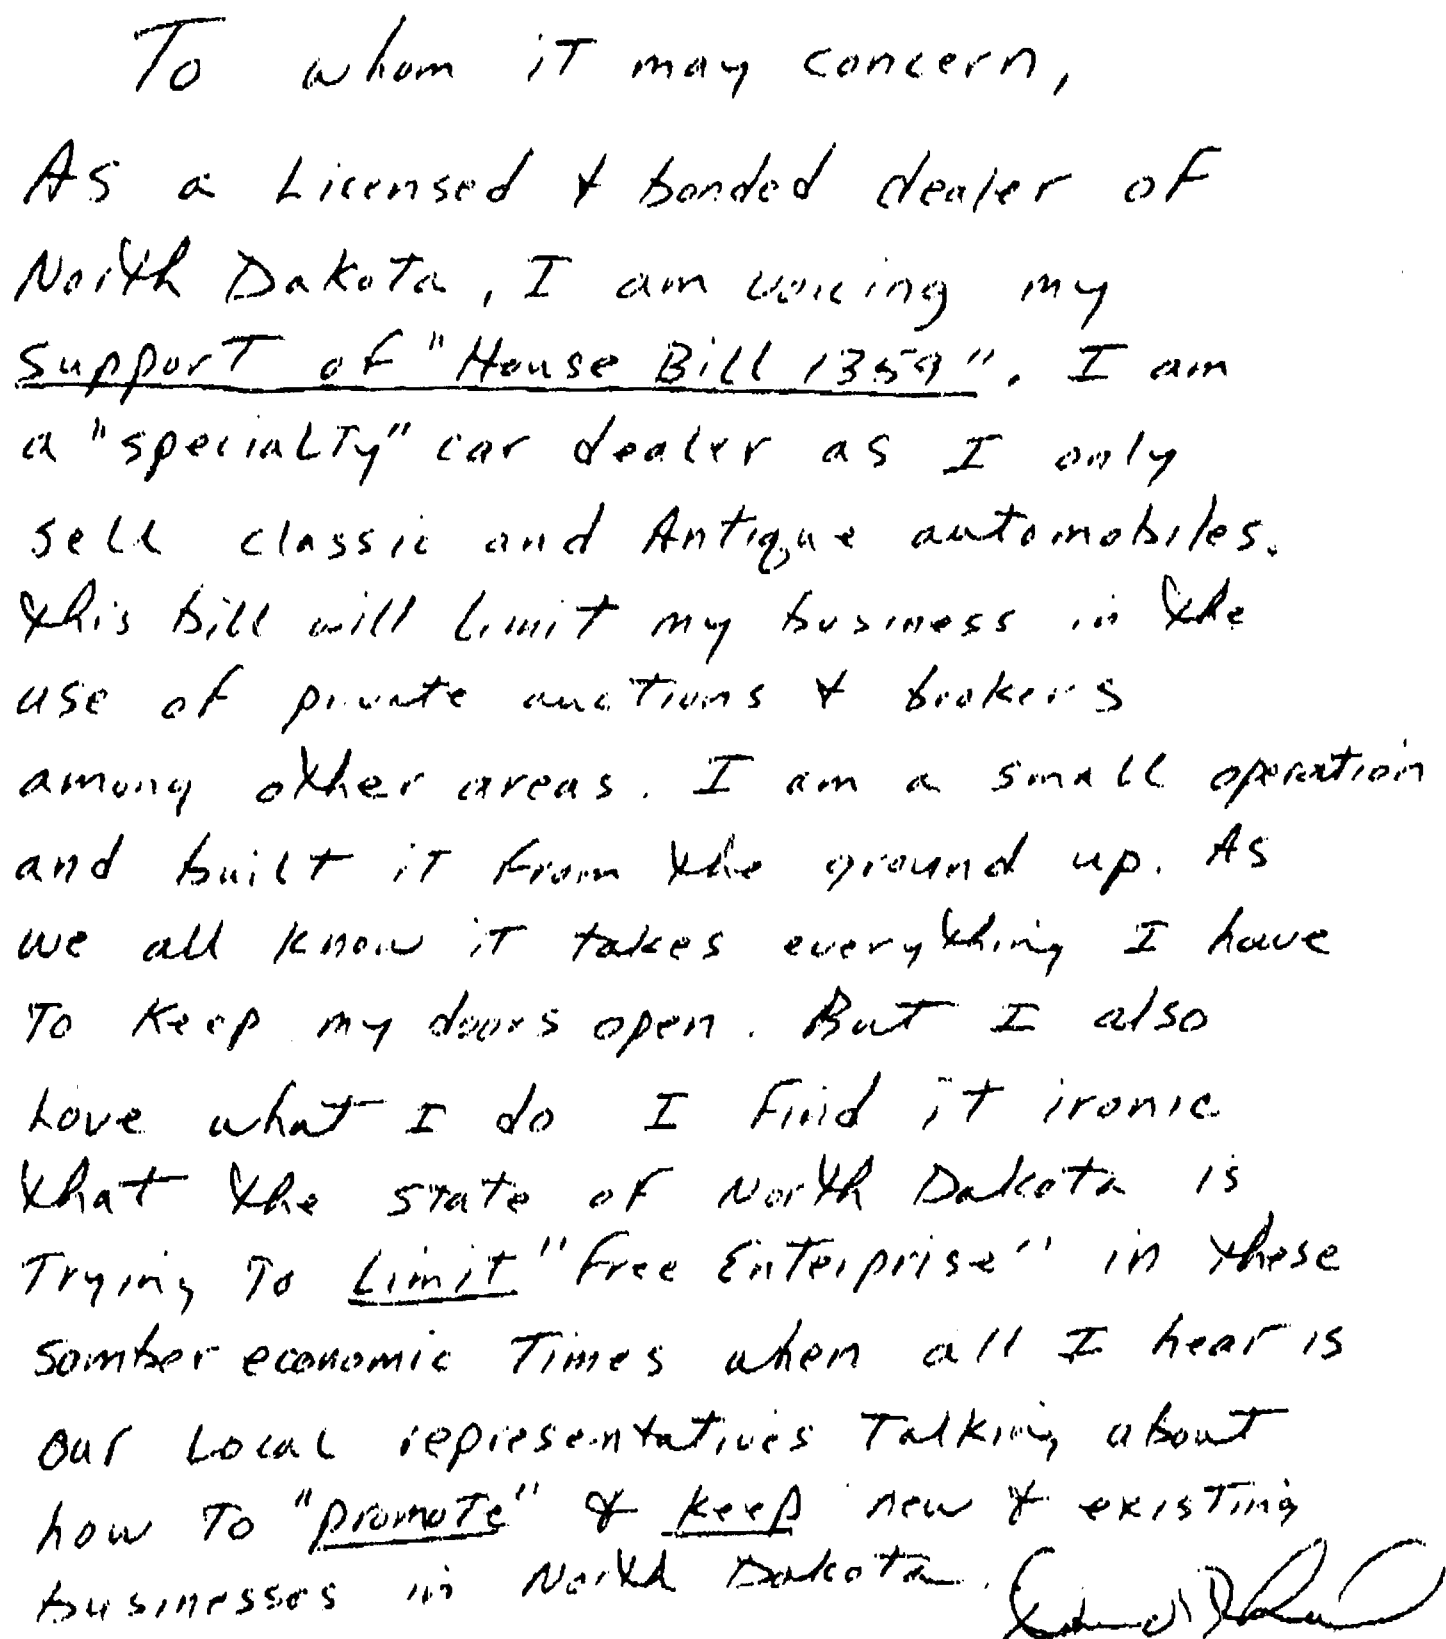 To whom it may concern,
As a Licensed & bonded dealer of
North Dakota, I am voicing my
support of "House Bill 1359". I am
a "specialty" car dealer as I only
sell classic and Antique automobiles.
this bill will limit my business in the
use of private auctions & brokers
among other areas. I am a small operation
and built it from the ground up. As
we all know it takes everything I have
To Keep my doors open. But I also
Love what I do I find it ironic
that the state of North Dakota is
Trying To Limit "Free Enterprise" in these
somber economic Times when all I hear is
our Local representatives Talking about
how To "promote" & keep new & existing
businesses in North Dakota.